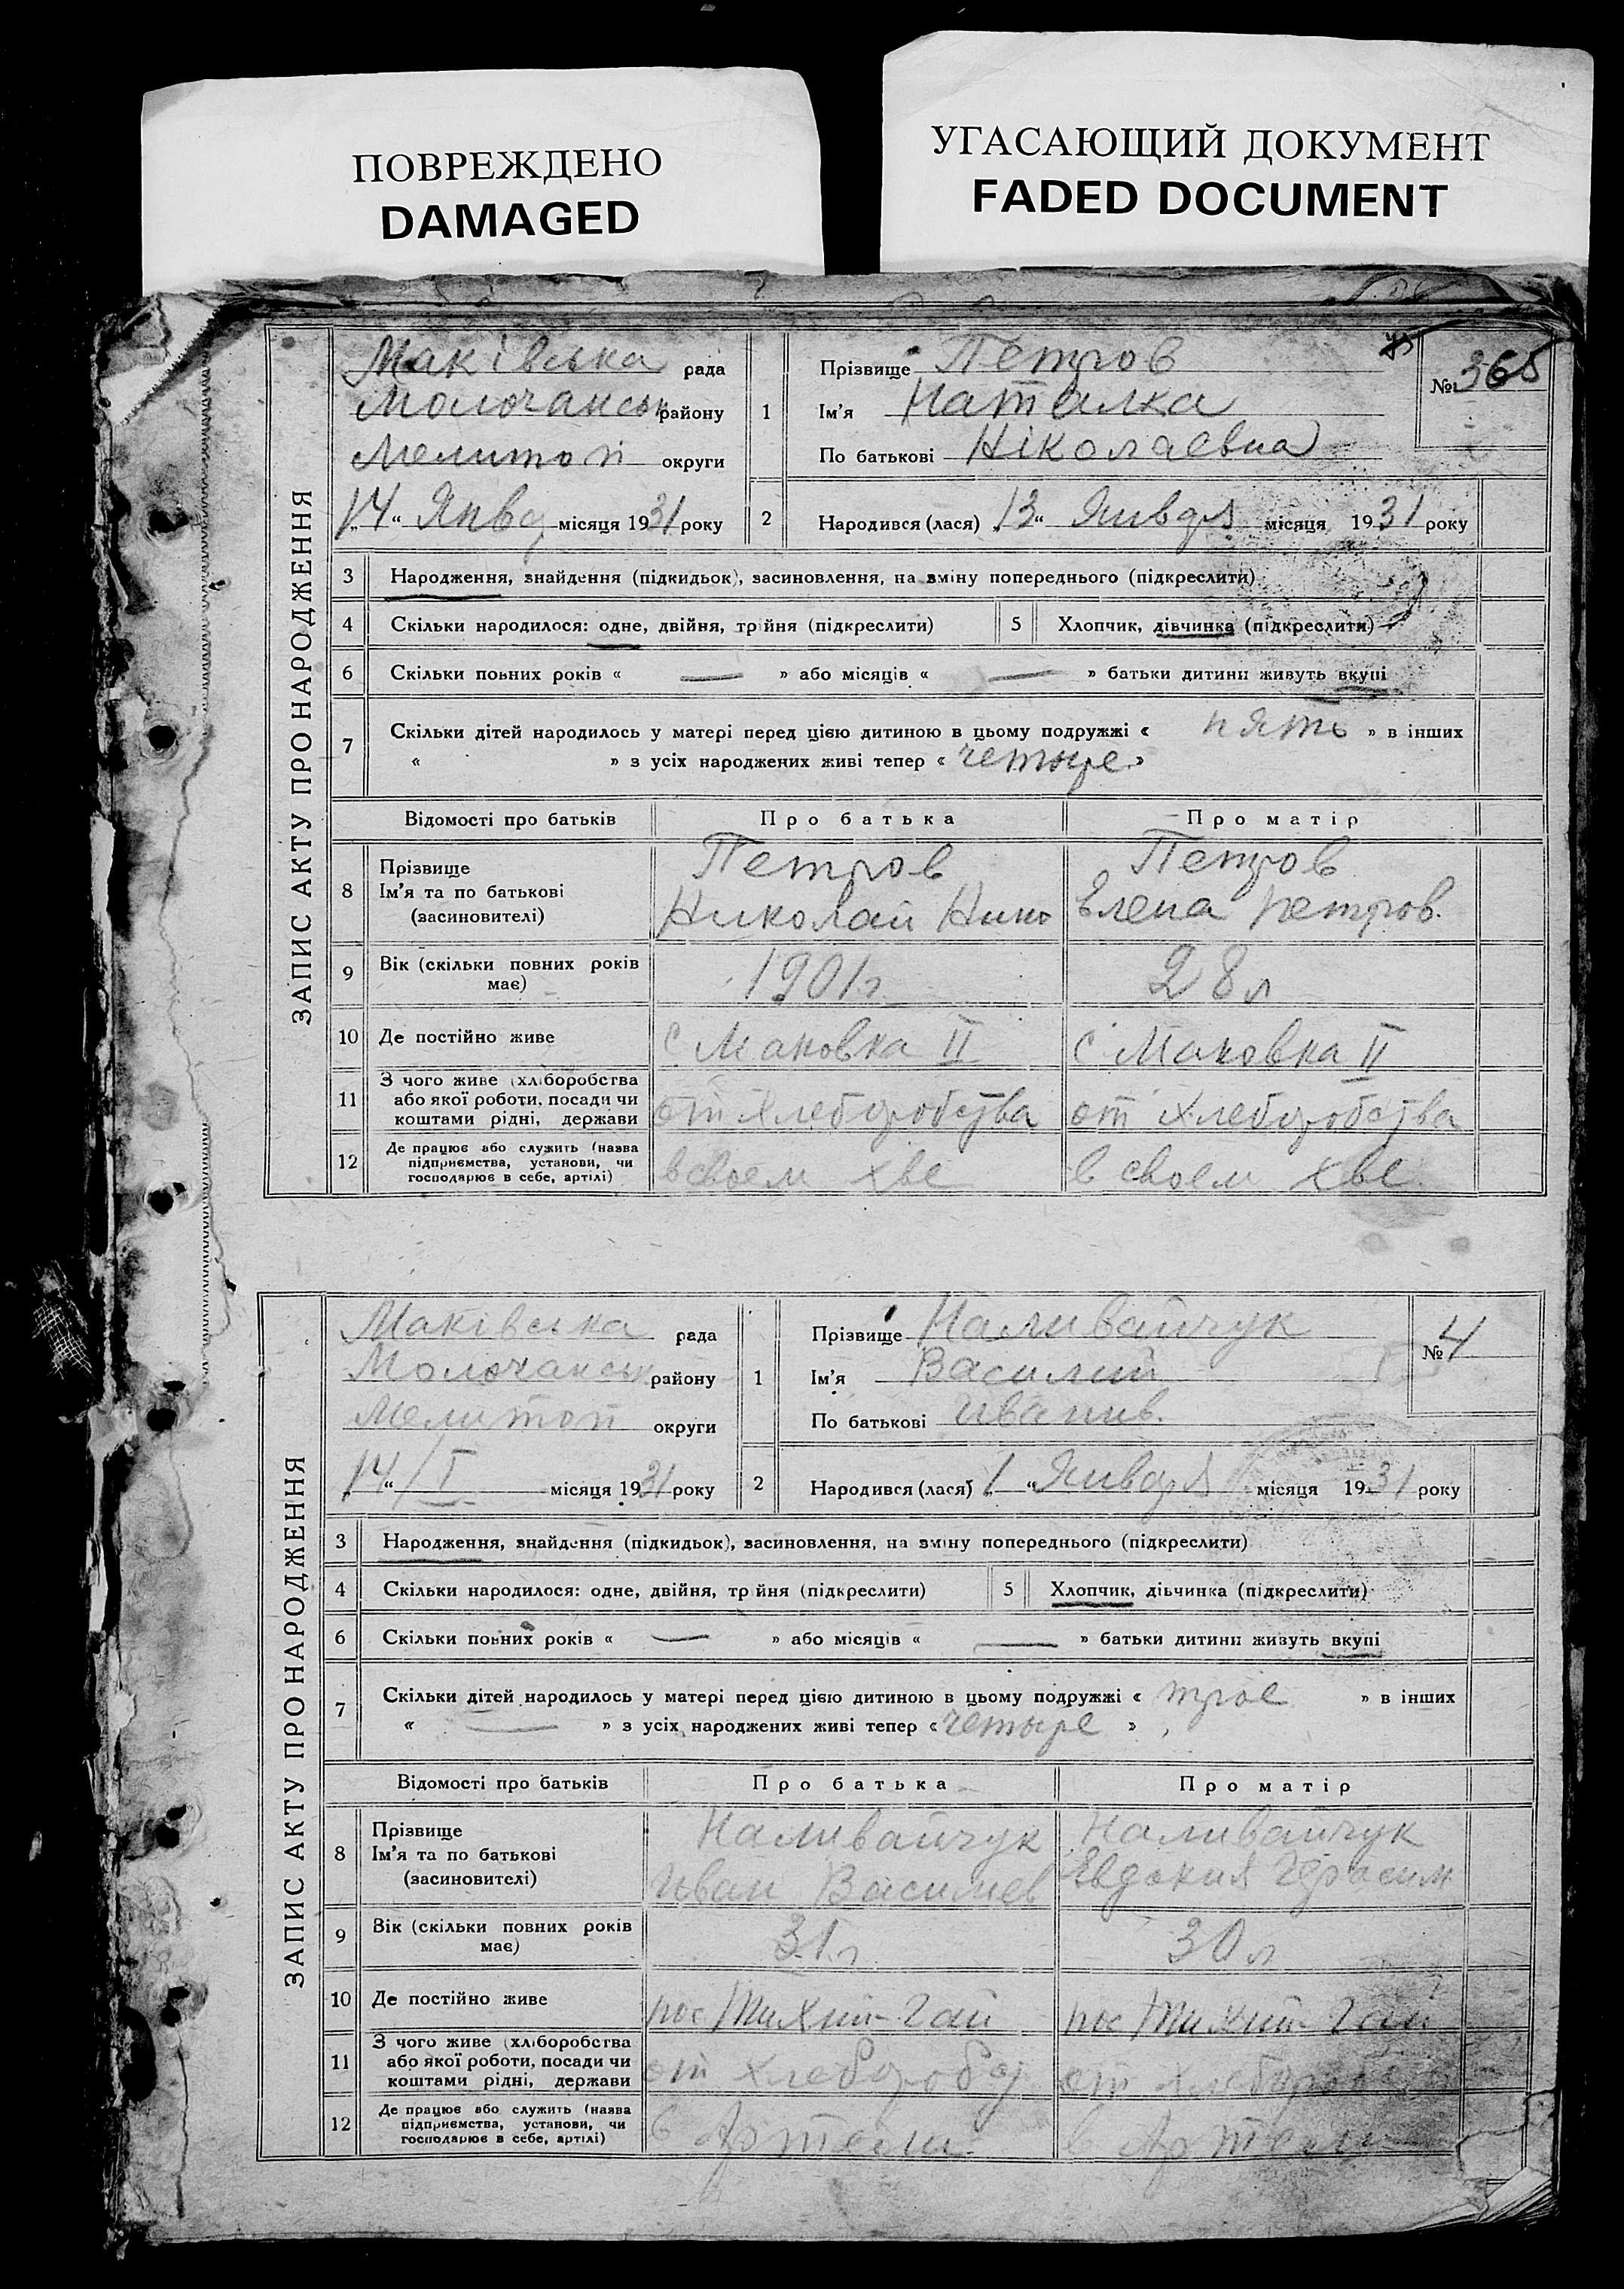 ПОВРЕЖДЕНО
DAMAGED
УГАСАЮЩИЙ ДОКУМЕНТ
FADED DOCUMENT
ЗАПИС АКТУ ПРО НАРОДЖЕННЯ
Маківська рада
Молочанськ району
Мелитоп округи
„14“ Янва місяця 1931 року
1
Прізвище Петров
Ім'я Наталка
По батькові Ніколаевна
№ 365
2
Народився (лася) „13“ Января місяця 1931 року
3 Народження, знайдення (підкидьок), засиновлення, на зміну попереднього (підкреслити)
4 Скільки народилося: одне, двійня, трійня (підкреслити)
5 Хлопчик, дівчинка (підкреслити)
6 Скільки повних років « — » або місяців « — » батьки дитини живуть вкупі
7 Скільки дітей народилось у матері перед цією дитиною в цьому подружжі « пять » в інших
« » з усіх народжених живі тепер « четыре »
Відомості про батьків Про батька Про матір
8 Прізвище
Ім'я та по батькові
(засиновителі)
Петров
Николай Нико
Петров
Елена Петров.
9 Вік (скільки повних років має) 1901 г 28 л
10 Де постійно живе с Маковка II с Маковка II
11 З чого живе (хліборобства
або якої роботи, посади чи
коштами рідні, держави
от хлеборобства от хлеборобства
12 Де працює або служить (назва
підприємства, установи, чи
господарює в себе, артілі)
в своем хве в своем хве.
ЗАПИС АКТУ ПРО НАРОДЖЕННЯ
Маківська рада
Молочанськ району
Мелитоп округи
„14“/I місяця 1931 року
1
Прізвище Наливайчук
Ім'я Василий
По батькові Иванив.
№ 4
2
Народився (лася) „1“ Января місяця 1931 року
3 Народження, знайдення (підкидьок), засиновлення, на зміну попереднього (підкреслити)
4 Скільки народилося: одне, двійня, трійня (підкреслити)
5 Хлопчик, дівчинка (підкреслити)
6 Скільки повних років « — » або місяців « — » батьки дитини живуть вкупі
7 Скільки дітей народилось у матері перед цією дитиною в цьому подружжі « трое » в інших
« — » з усіх народжених живі тепер « четыре »
Відомості про батьків Про батька Про матір
8 Прізвище
Ім'я та по батькові
(засиновителі)
Наливайчук
Иван Василиев
Наливайчук
Евдокия Герасим
9 Вік (скільки повних років має) 31 г 30 л
10 Де постійно живе пос Тихий-Гай пос Тихий-Гай
11 З чого живе (хліборобства
або якої роботи, посади чи
коштами рідні, держави
от хлебороб от хлебороб
12 Де працює або служить (назва
підприємства, установи, чи
господарює в себе, артілі)
в Артели в Артели